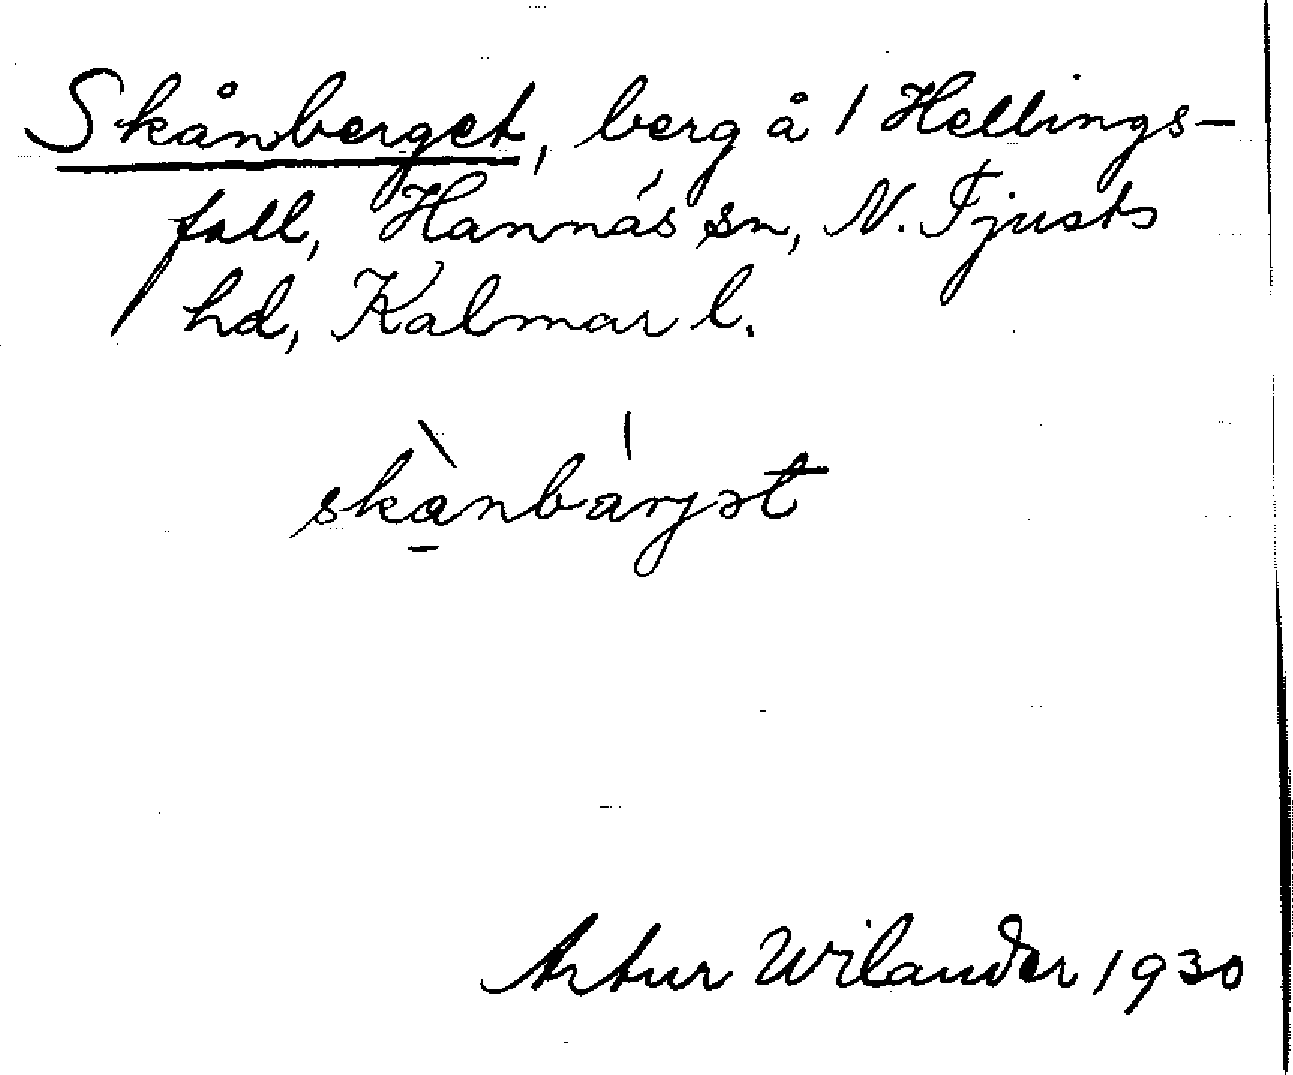 Skånberget, berg å 1 Hellings-
fall, Hannäs sn, N. Tjusts
hd, Kalmar l.
skànbárjət
Artur Wilander 1930